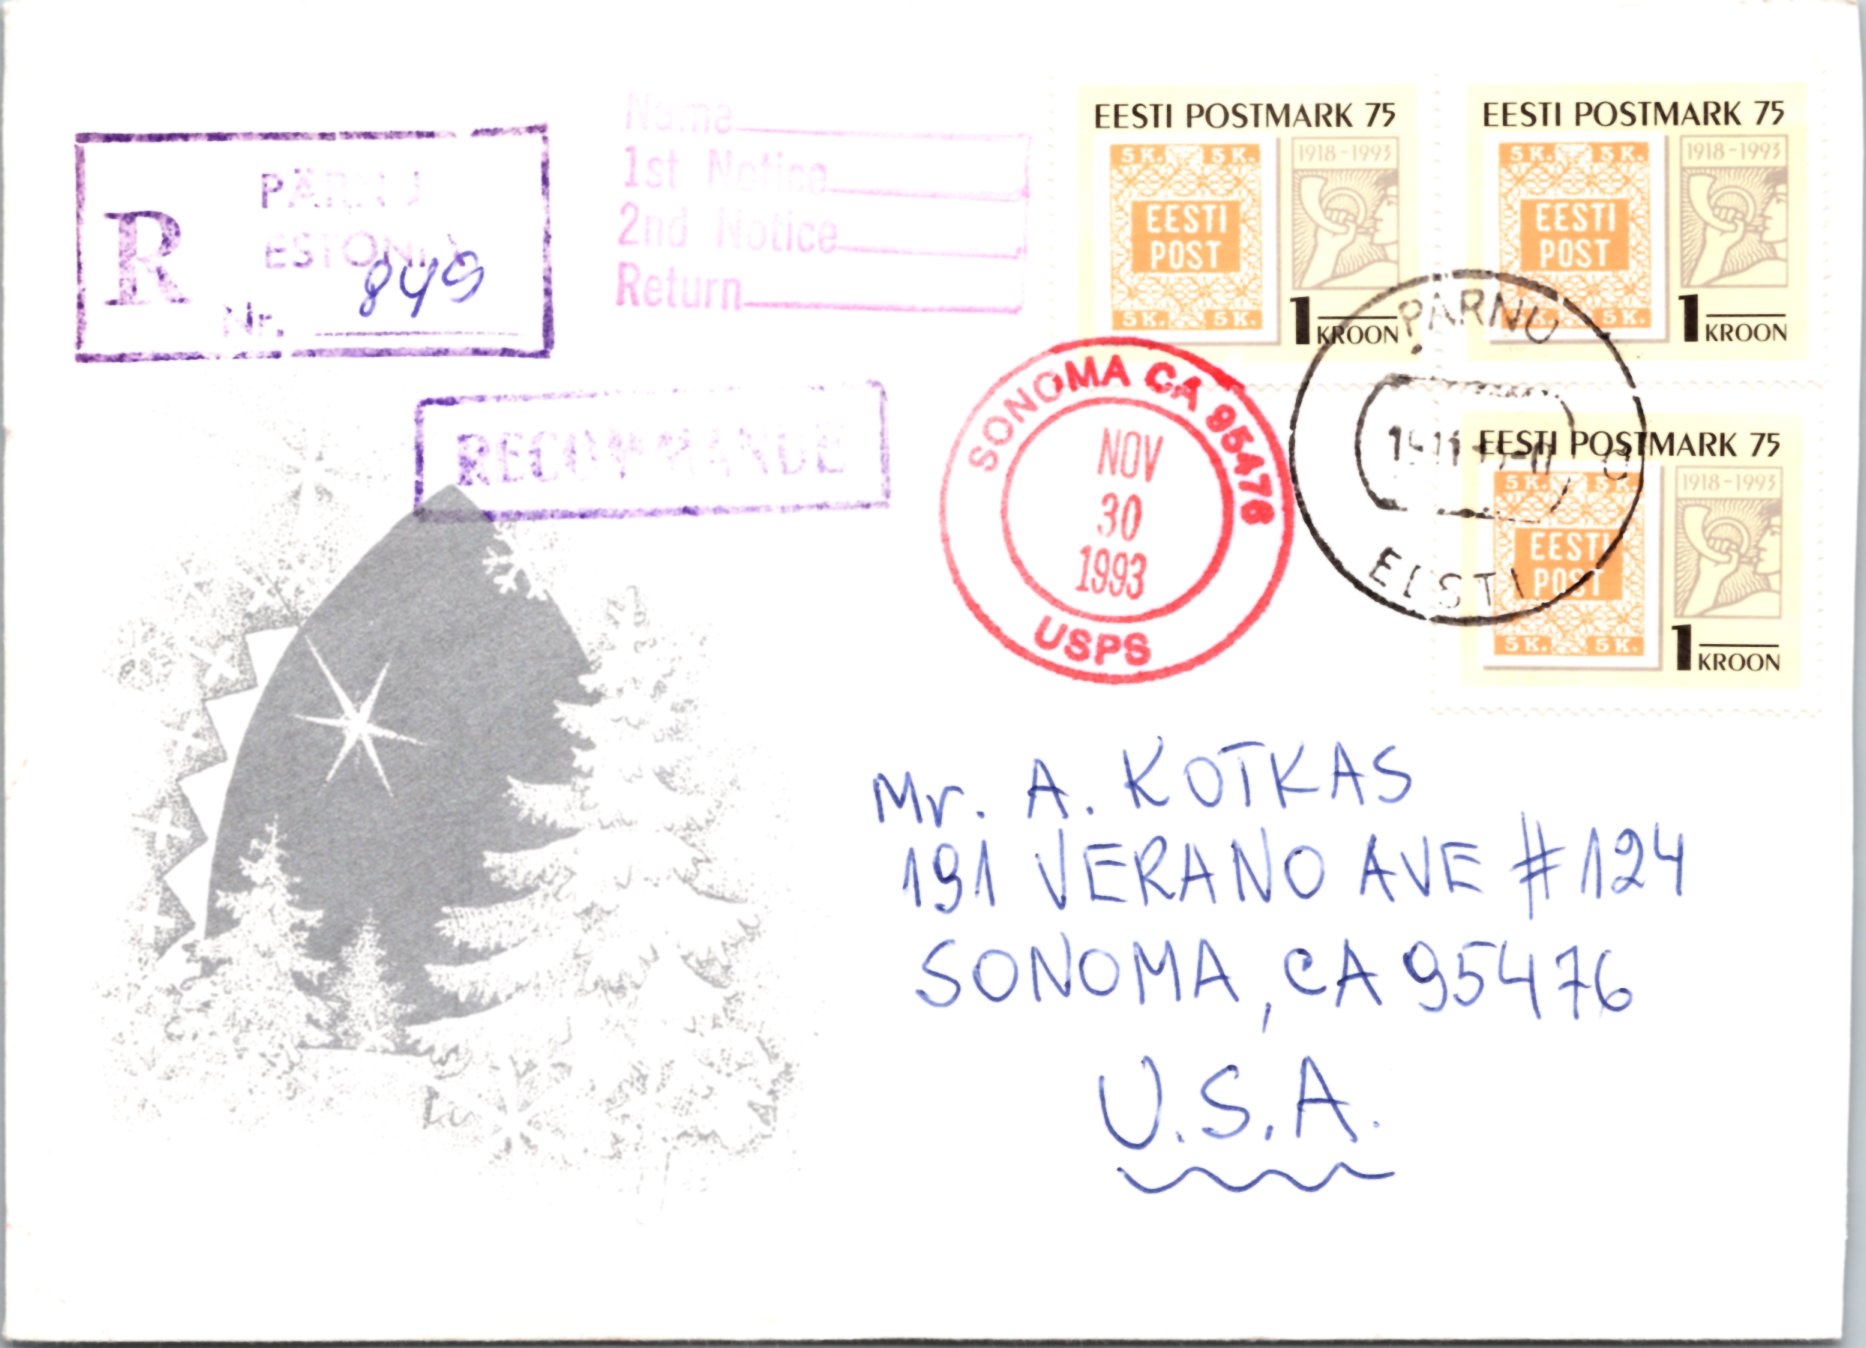 PÄRNU
ESTONIA
R
Nr. 849
RECOMMANDE
Name
1st Notice
2nd Notice
Return
EESTI POSTMARK 75
5 K. 5 K.
1918-1993
EESTI
POST
5 K. 5 K.
1 KROON
EESTI POSTMARK 75
5 K. 5 K.
1918-1993
EESTI
POST
5 K. 5 K.
1 KROON
EESTI POSTMARK 75
5 K. 5 K.
1918-1993
EESTI
POST
5 K. 5 K.
1 KROON
SONOMA CA 95476
NOV
30
1993
USPS
PÄRNU
EESTI
Mr. A. KOTKAS
191 VERANO AVE #124
SONOMA, CA 95476
U.S.A.